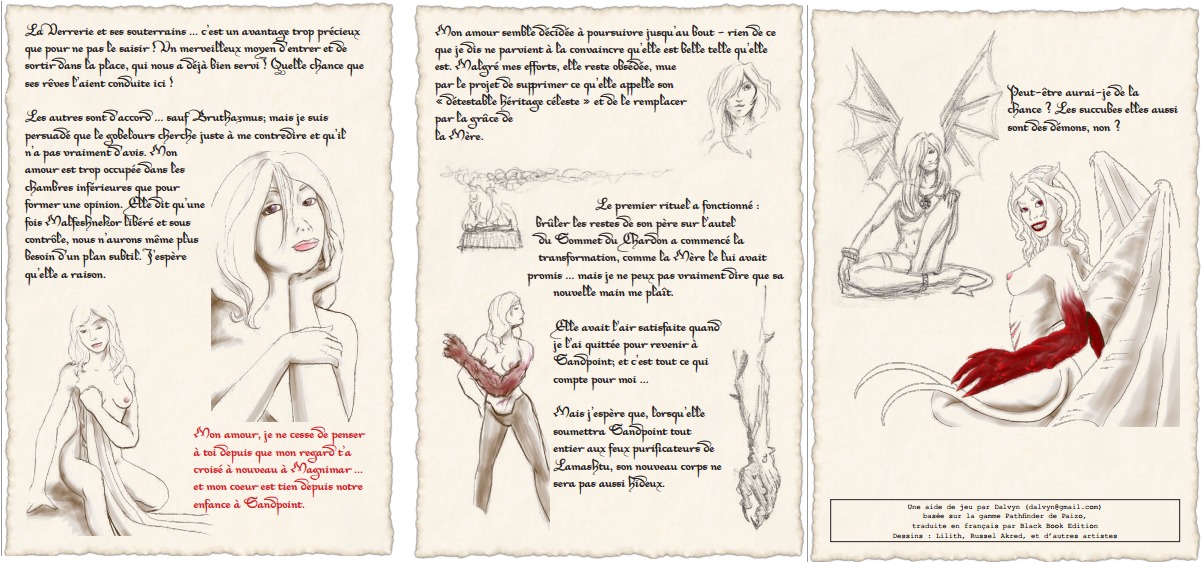 La Verrerie et ses souterrains ... c'est un avantage trop précieux
que pour ne pas le saisir ! Un merveilleux moyen d'entrer et de
sortir dans la place, qui nous a déjà bien servi ! Quelle chance que
ses rêves l'aient conduite ici !
Les autres sont d'accord ... sauf Bruthazmus; mais je suis
persuadé que le gobelours cherche juste à me contredire et qu'il
n'a pas vraiment d'avis. Mon
amour est trop occupée dans les
chambres inférieures que pour
former une opinion. Elle dit qu'une
fois Malfeshnekor libéré et sous
contrôle, nous n'aurons même plus
besoin d'un plan subtil. J'espère
qu'elle a raison.
Mon amour, je ne cesse de penser
à toi depuis que mon regard t'a
croisé à nouveau à Magnimar ...
et mon coeur est tien depuis notre
enfance à Sandpoint.
Mon amour semble décidée à poursuivre jusqu'au bout - rien de ce
que je dis ne parvient à la convaincre qu'elle est belle telle qu'elle
est. Malgré mes efforts, elle reste obsédée, mue
par le projet de supprimer ce qu'elle appelle son
« détestable héritage céleste » et de le remplacer
par la grâce de
la Mère.
Le premier rituel a fonctionné :
brûler les restes de son père sur l'autel
du Sommet du Chardon a commencé la
transformation, comme la Mère le lui avait
promis ... mais je ne peux pas vraiment dire que sa
nouvelle main me plaît.
Elle avait l'air satisfaite quand
je l'ai quittée pour revenir à
Sandpoint; et c'est tout ce qui
compte pour moi ...
Mais j'espère que, lorsqu'elle
soumettra Sandpoint tout
entier aux feux purificateurs de
Lamashtu, son nouveau corps ne
sera pas aussi hideux.
Peut-être aurai-je de la
chance ? Les succubes elles aussi
sont des démons, non ?
Une aide de jeu par Dalvyn (dalvyn@gmail.com)
basée sur la gamme Pathfinder de Paizo,
traduite en français par Black Book Edition
Dessins : Lilith, Russel Akred, et d'autres artistes